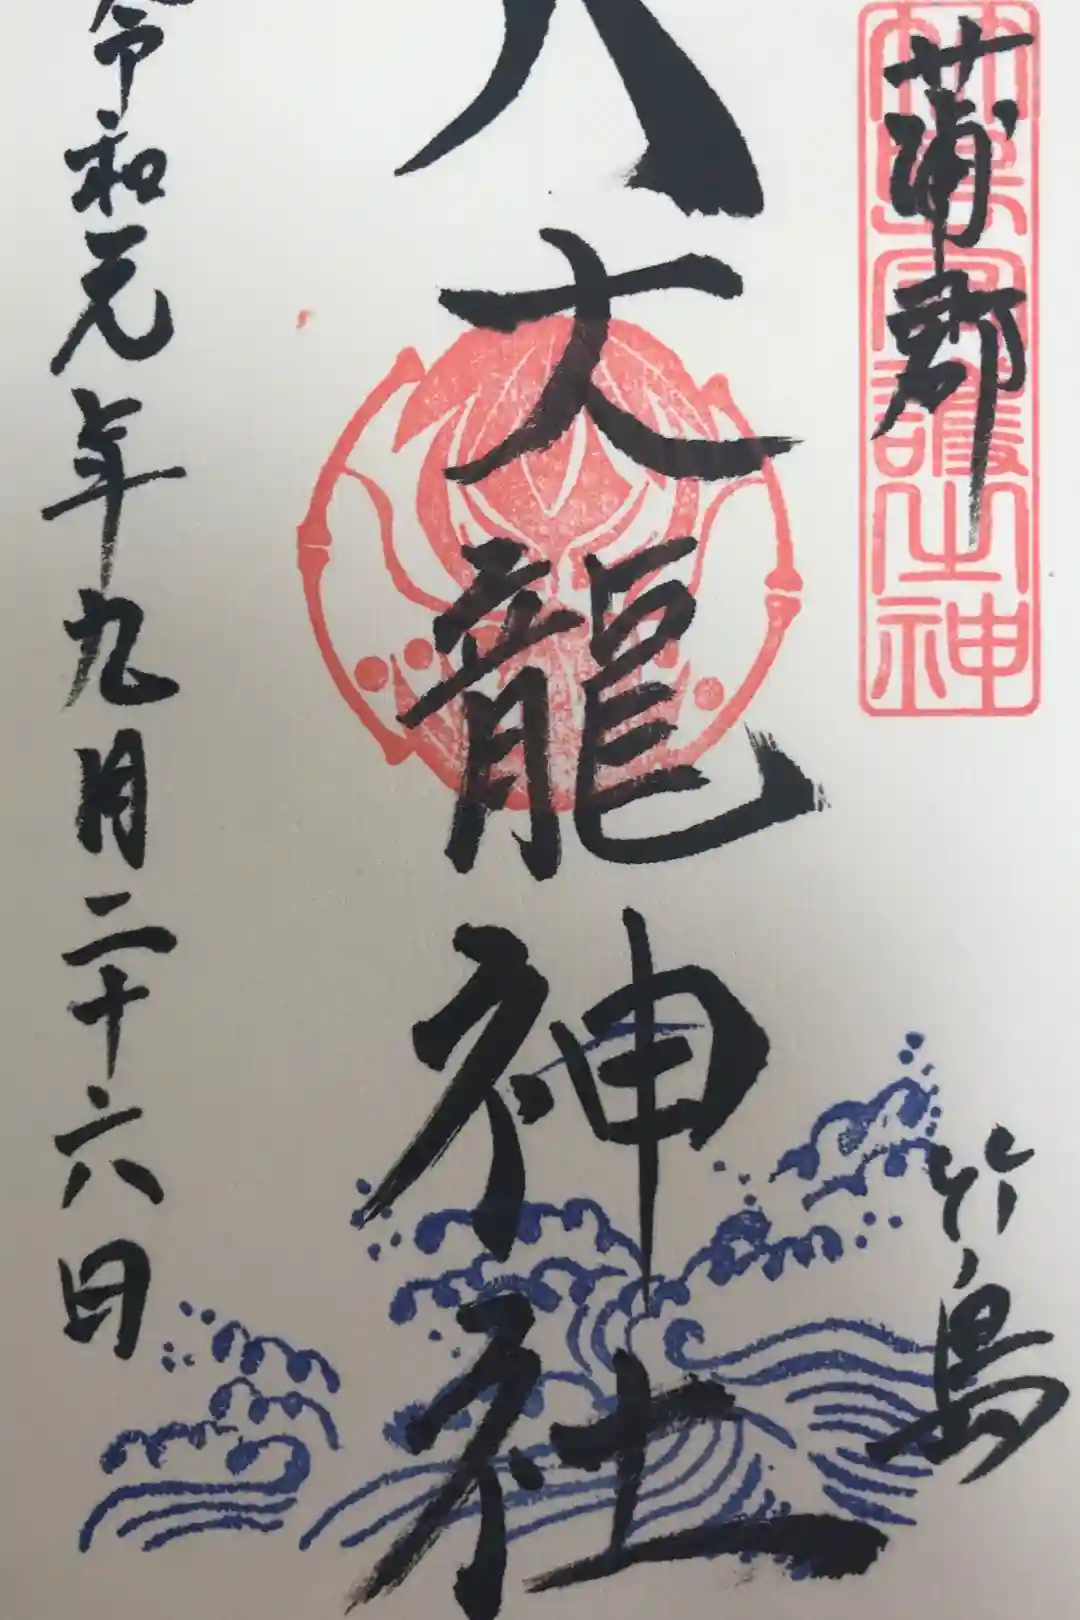 蒲郡
竹島
八大龍神社
令和元年九月二十六日